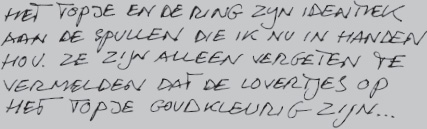 HET TOPJE EN DE RING ZIJN IDENTIEK
AAN DE SPULLEN DIE IK NU IN HANDEN
HOU. ZE ZIJN ALLEEN VERGETEN TE
VERMELDEN DAT DE LOVERTJES OP
HET TOPJE GOUDKLEURIG ZIJN...